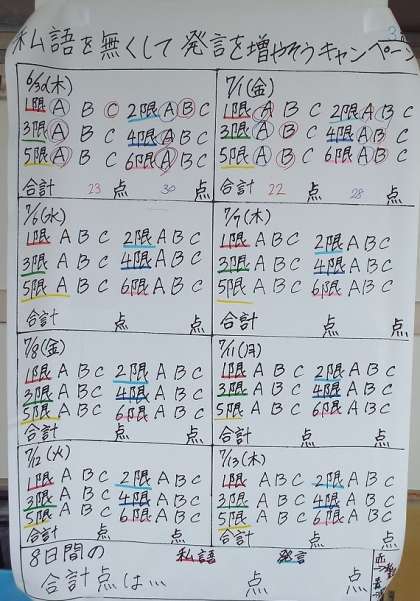 私語を無くして 発言を増やそうキャンペーン
6/30(木)
1限 A B C 2限 A B C
3限 A B C 4限 A B C
5限 A B C 6限 A B C
合計 23 点 30 点
7/1(金)
1限 A B C 2限 A B C
3限 A B C 4限 A B C
5限 A B C 6限 A B C
合計 22 点 28 点
7/6(水)
1限 A B C 2限 A B C
3限 A B C 4限 A B C
5限 A B C 6限 A B C
合計 点 点
7/7(木)
1限 A B C 2限 A B C
3限 A B C 4限 A B C
5限 A B C 6限 A B C
合計 点 点
7/8(金)
1限 A B C 2限 A B C
3限 A B C 4限 A B C
5限 A B C 6限 A B C
合計 点 点
7/11(月)
1限 A B C 2限 A B C
3限 A B C 4限 A B C
5限 A B C 6限 A B C
合計 点 点
7/12(火)
1限 A B C 2限 A B C
3限 A B C 4限 A B C
5限 A B C 6限 A B C
合計 点 点
7/13(木)
1限 A B C 2限 A B C
3限 A B C 4限 A B C
5限 A B C 6限 A B C
合計 点 点
8日間の 私語 発言
合計点は… 点 点